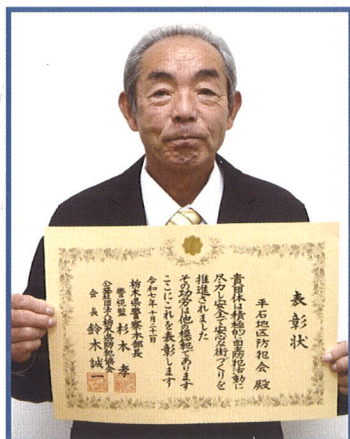 表彰状
平石地区防犯会 殿
貴団体は積極的に自主防犯活動に
尽力し安全で安心な街づくりを
推進されました
その功労は他の模範であります
ここにこれを表彰します
令和七年十月二十日
栃木県警察本部長
警視監 杉本 孝
公益社団法人栃木県防犯協会
会長 鈴木誠一